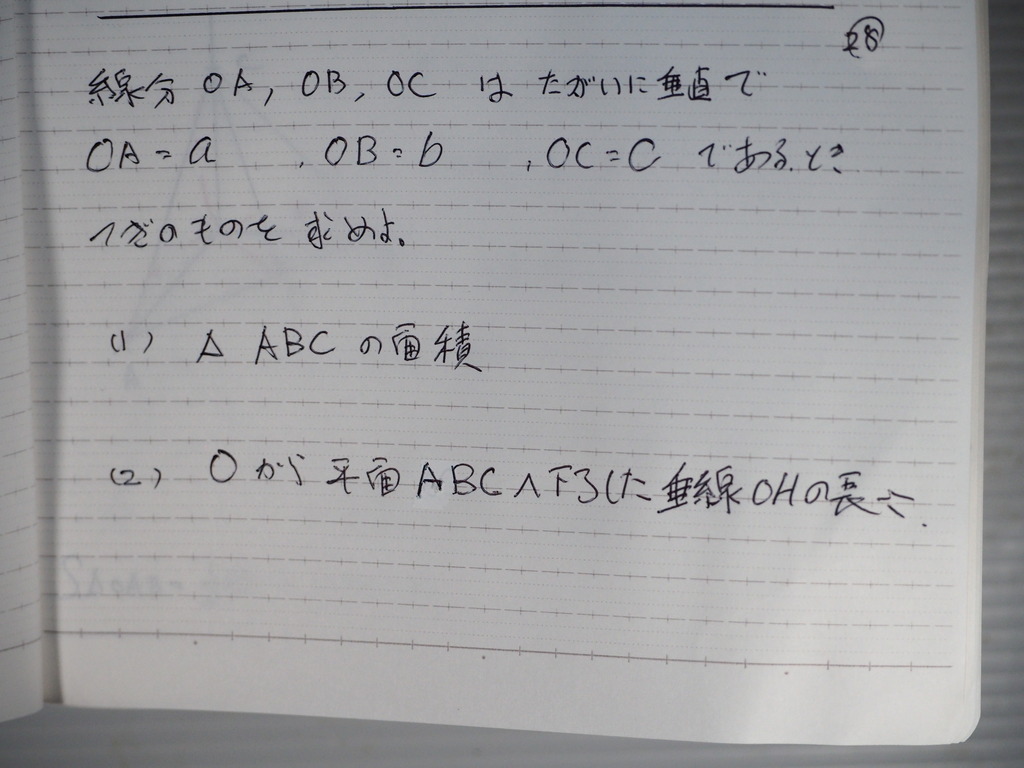 28
線分 OA, OB, OC は たがいに垂直で
OA = a , OB = b , OC = C であるとき
つぎのものを 求めよ。
(1) △ ABC の面積
(2) O から 平面 ABC へ下ろした 垂線 OH の長さ.